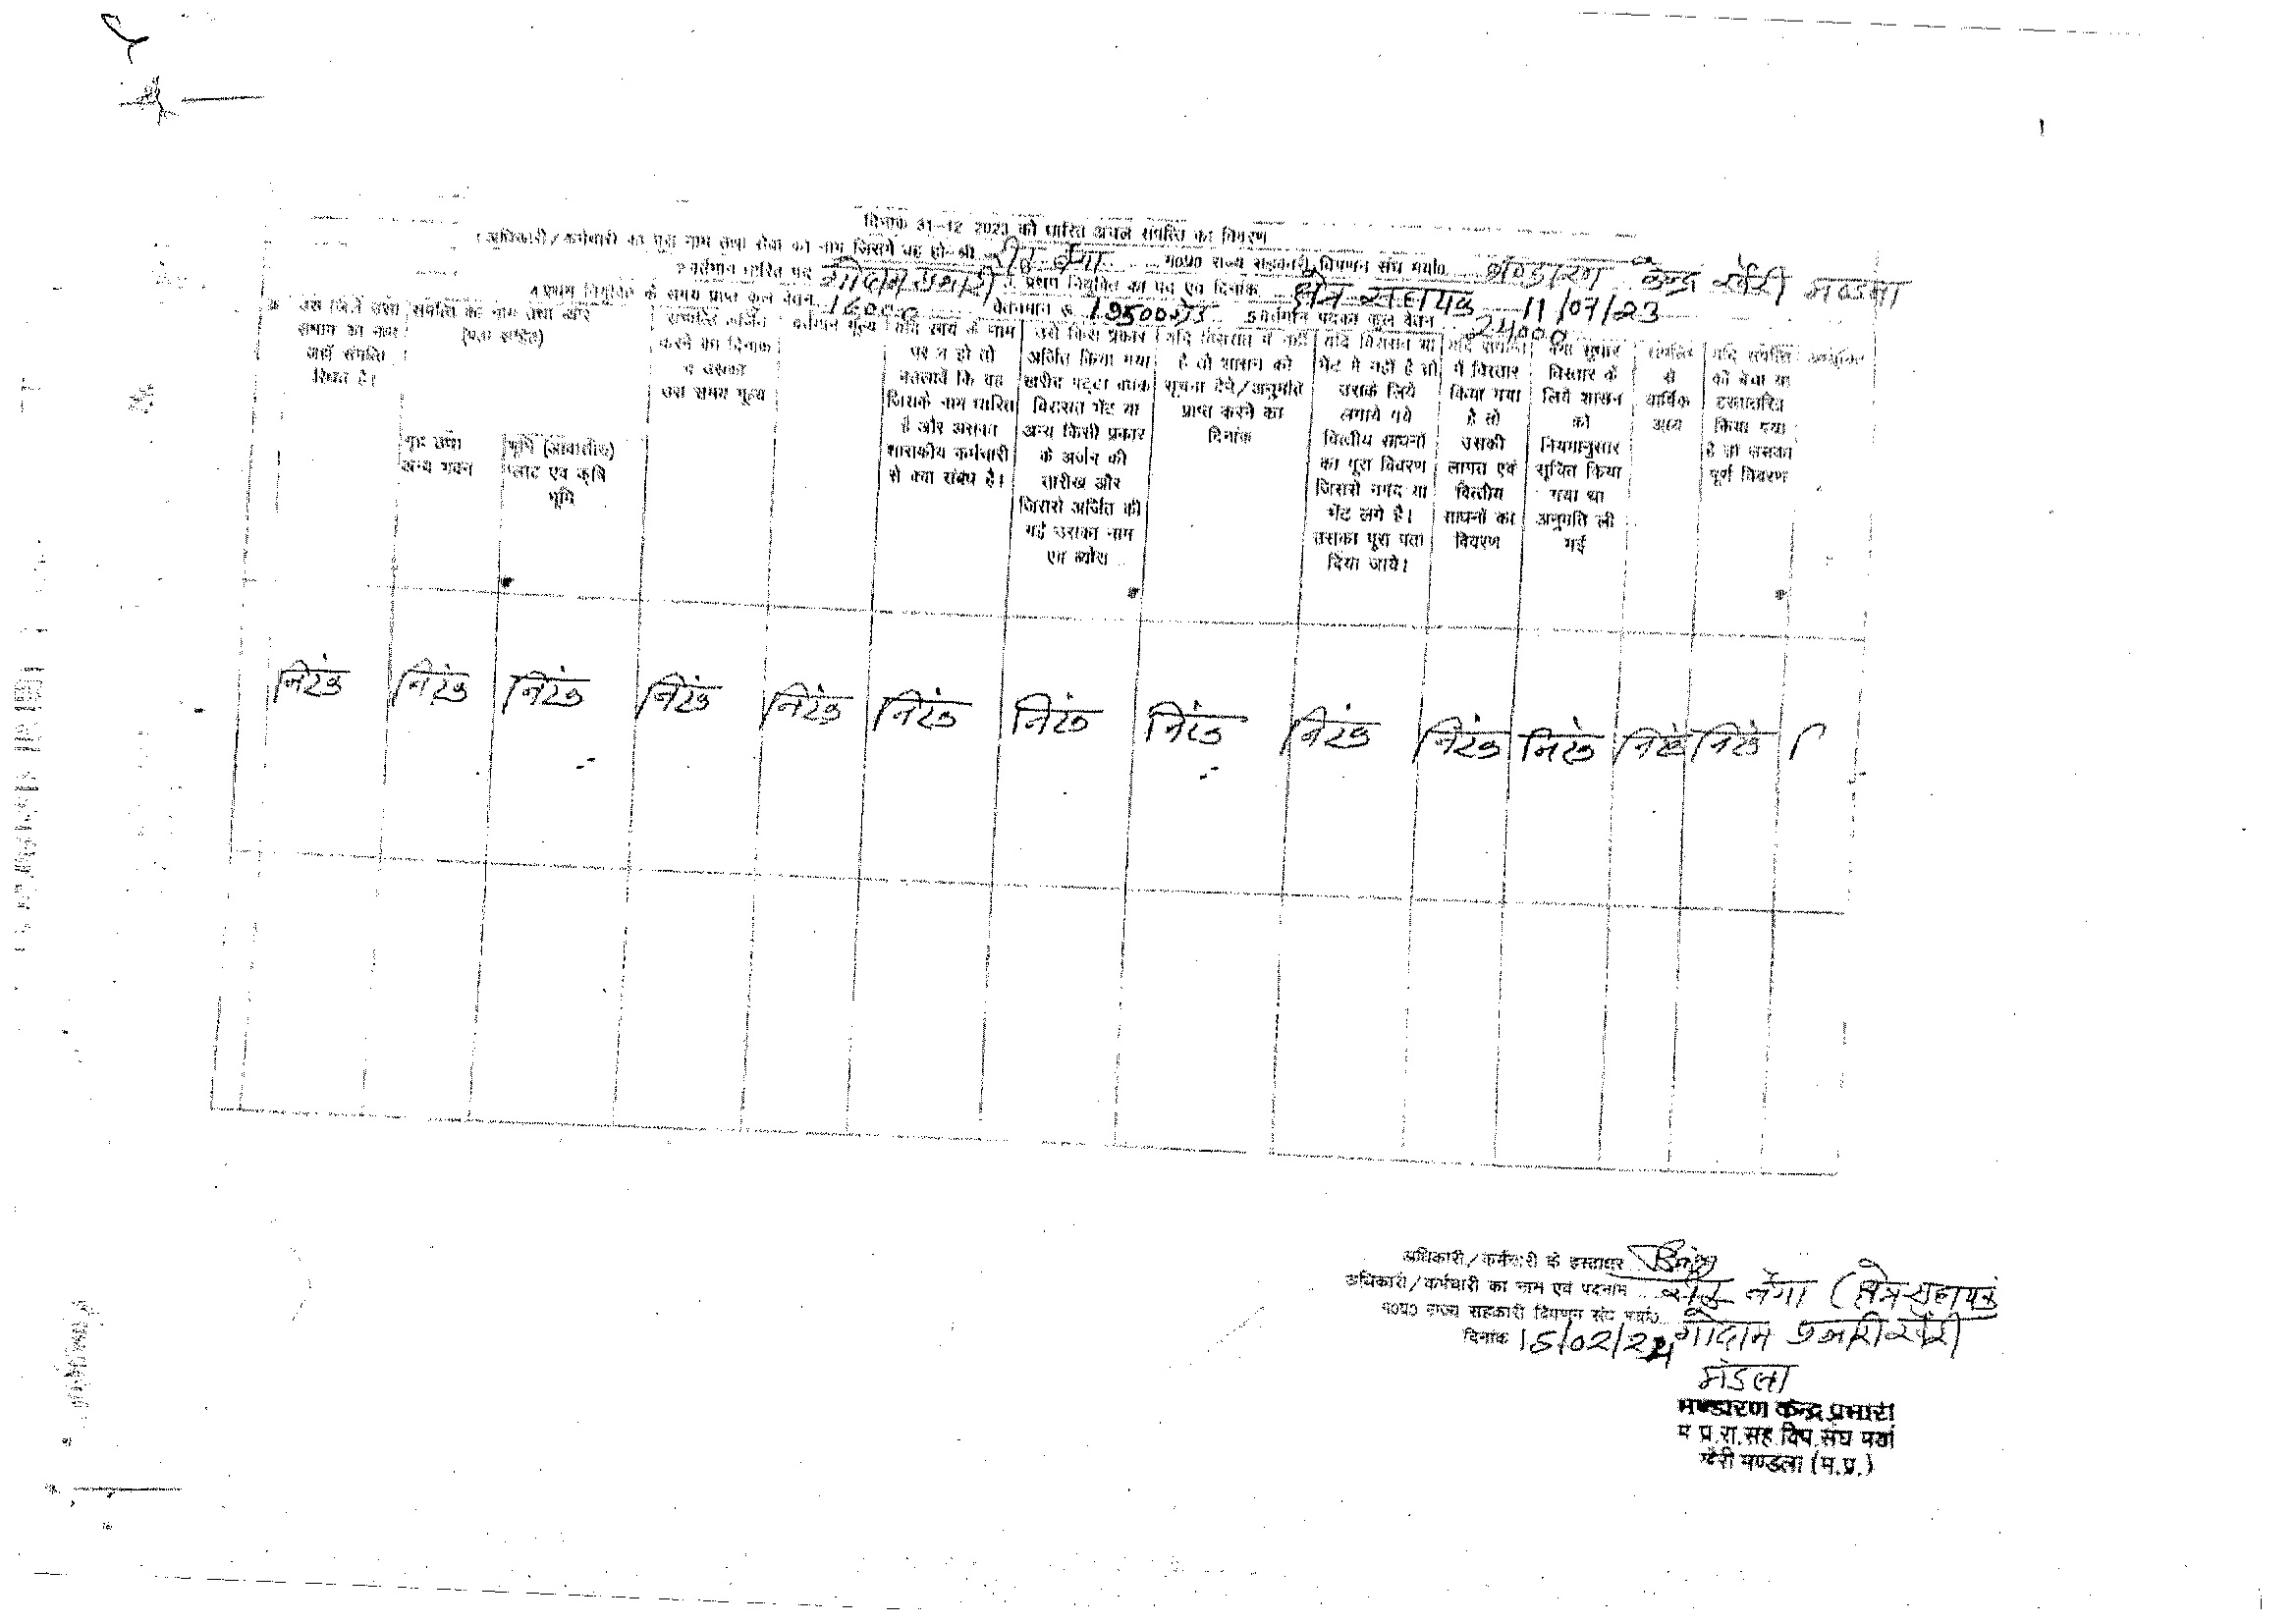 दिनांक 31-12 2023 को धारित अचल संपत्ति का विवरण
1 अधिकारी/कर्मचारी का पूरा नाम तथा सेवा का नाम जिसमें वह हो-श्री म0प्र0 राज्य सहकारी विपणन संघ मर्या0 भण्डारण केन्द्र खैरी मण्डला
2 वर्तमान धारित पद गोदाम प्रभारी 3. प्रथम नियुक्ति का पद एवं दिनांक क्षेत्र सहायक 11/07/23
4 प्रथम नियुक्ति के समय प्राप्त कुल वेतन 16000 वेतनमान रू. 19500 5 वर्तमान पदका कुल वेतन 24000
उस जिले तथा संभाग का नाम जहाँ संपत्ति स्थित है।
संपत्ति का नाम तथा ब्यौरा (पता सहित)
गृह तथा अन्य भवन
भूमि (आवासीय) प्लाट एवं कृषि भूमि
सम्पत्ति अर्जित करने का दिनांक व उसका उस समय मूल्य
वर्तमान मूल्य
यदि स्वयं के नाम पर न हो तो बतलावें कि वह जिसके नाम धारित है और उसका शासकीय कर्मचारी से क्या संबंध है।
उसे किस प्रकार अर्जित किया गया खरीद पट्टा बंधक विरासत भेंट या अन्य किसी प्रकार के अर्जन की तारीख और जिससे अर्जित की गई उसका नाम एवं ब्यौरा
यदि विरासत में नहीं है तो शासन को सूचना देने/अनुमति प्राप्त करने का दिनांक
यदि विरासत या भेंट में नहीं है तो उसके लिये लगाये गये वित्तीय साधनों का पूरा विवरण जिससे नगद या भेंट लगे है। उसका पूरा पता दिया जाये।
यदि संपत्ति में विस्तार किया गया है तो उसकी लागत एवं वित्तीय साधनों का विवरण
क्या सुधार विस्तार के लिये शासन को नियमानुसार सूचित किया गया था अनुमति ली गई
संपत्ति से वार्षिक आय
यदि संपत्ति को बेचा या हस्तांतरित किया गया है तो उसका पूर्ण विवरण
अभ्युक्ति
निरंक निरंक निरंक निरंक निरंक निरंक निरंक निरंक निरंक निरंक निरंक निरंक निरंक
अधिकारी/कर्मचारी के हस्ताक्षर
अधिकारी/कर्मचारी का नाम एवं पदनाम (क्षेत्र सहायक
म0प्र0 राज्य सहकारी विपणन संघ मर्या0 गोदाम प्रभारी खैरी
दिनांक 15/02/24
मंडला
भण्डारण केन्द्र प्रभारी
म प्र.रा.सह.विप.संघ मर्या
खैरी मण्डला (म.प्र.)